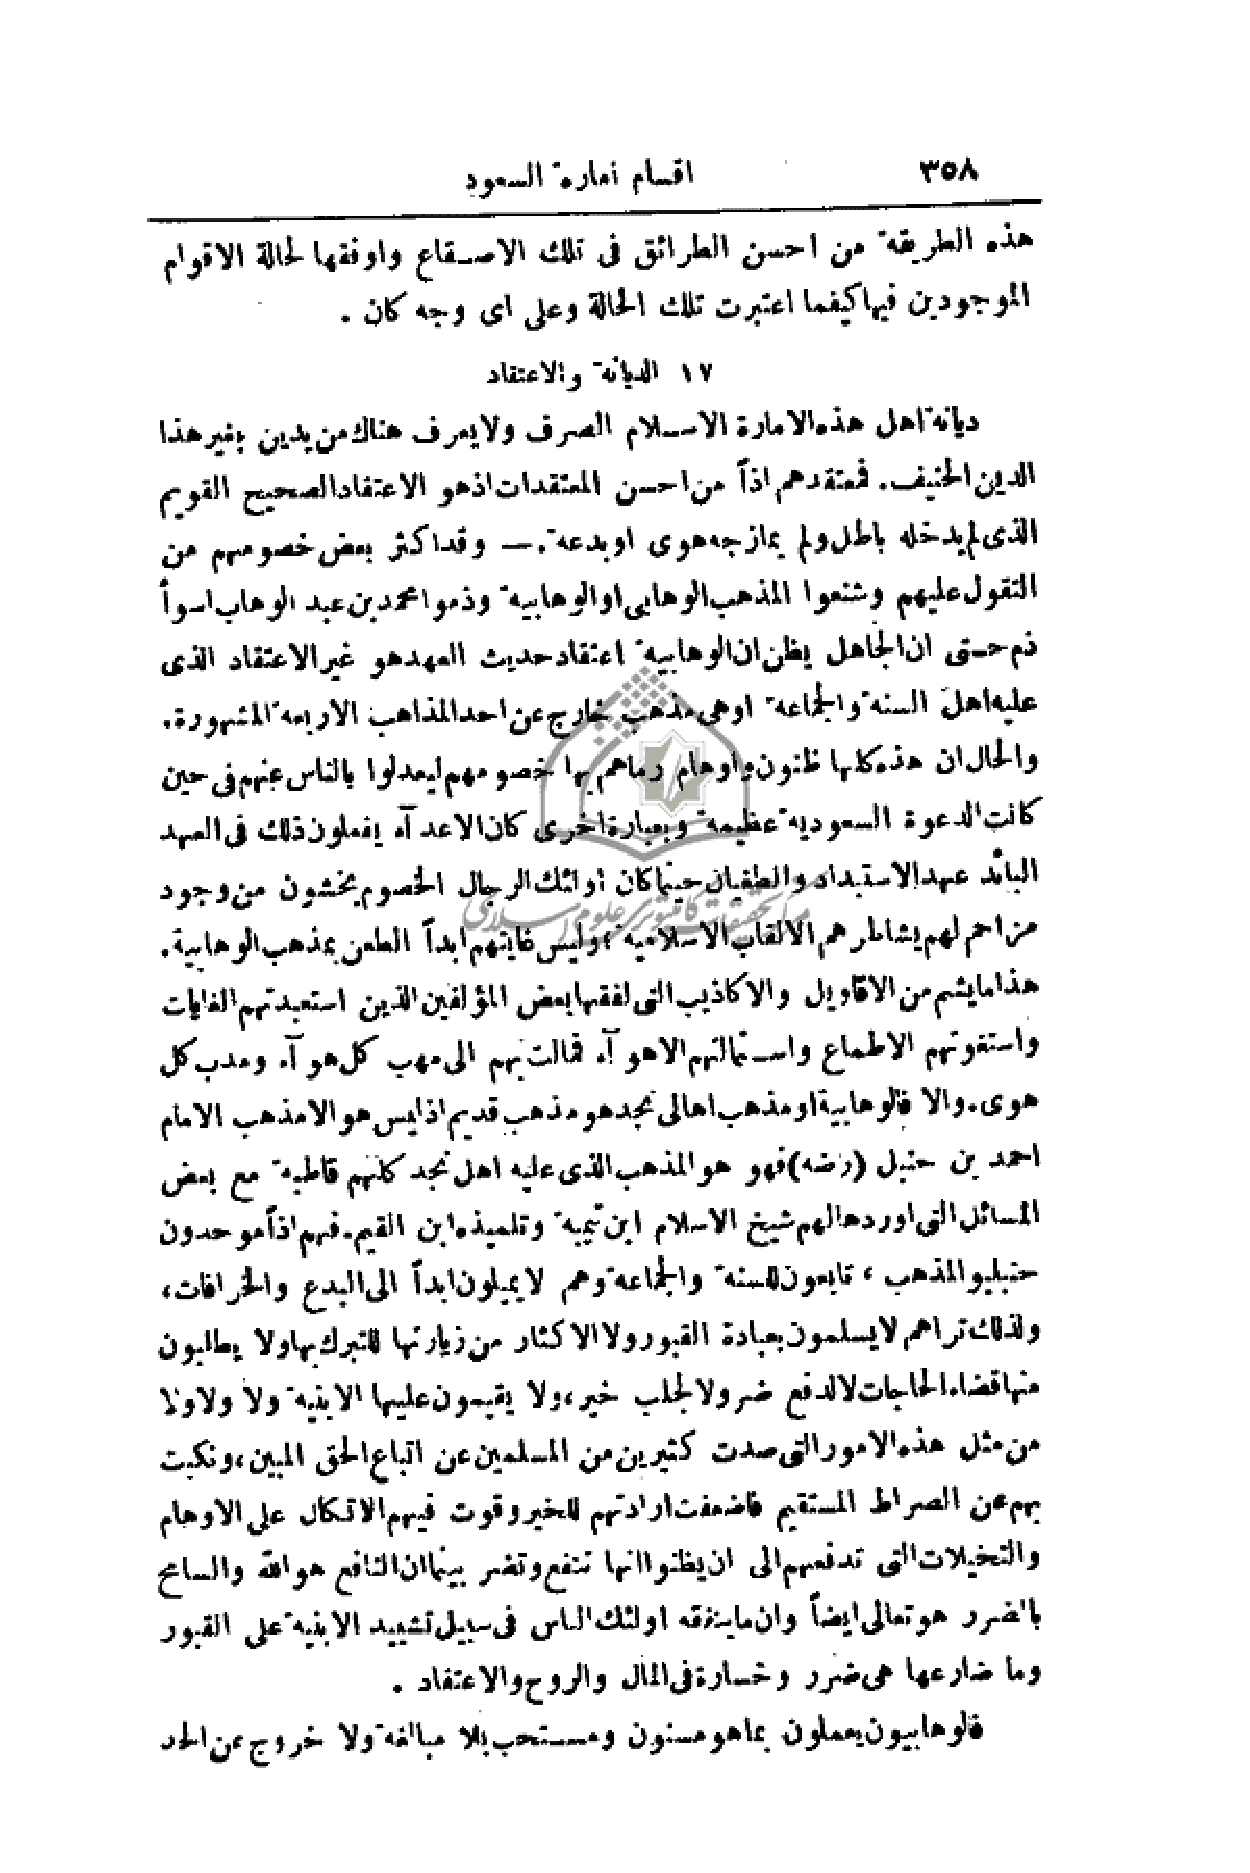 ٣٥٨
اقسام أمارة السعود
هذه الطريقة من احسن الطرائق فى تلك الاصقاع واوفقها لحالة الاقوام
الموجودين فيها كيفما اعتبرت تلك الحالة وعلى اى وجه كان .
١٧ الديانة والاعتقاد
ديانة اهل هذه الامارة الاسلام الصرف ولا يعرف هناك من يدين بغير هذا
الدين الحنيف . فمعتقدهم اذاً من احسن المعتقدات اذ هو الاعتقاد الصحيح القويم
الذى لم يدخله باطل ولم يمازجه هوى او بدعة . — وقد اكثر بعض خصومهم من
التقول عليهم وشنعوا المذهب الوهابى او الوهابية وذموا محمد بن عبد الوهاب اسوأ
ذم حتى ان الجاهل يظن ان الوهابية اعتقاد حديث العهد هو غير الاعتقاد الذى
عليه اهل السنة والجماعة او هى مذهب خارج عن احد المذاهب الاربعة المشهورة .
والحال ان هذه كلها ظنون واوهام رماهم بها خصومهم ليعدلوا بالناس عنهم فى حين
كانت الدعوة السعودية عظيمة وبعبارة اخرى كان الاعدآء يفعلون ذلك فى العهد
البائد عهد الاستبداد والطغيان حينما كان أولئك الرجال الخصوم يخشون من وجود
مزاحم لهم يشاطرهم الالقاب الاسلامية ، وليس غايتهم ابداً الطعن بمذهب الوهابية .
هذا ما يشم من الاقاويل والاكاذيب التى لفقها بعض المؤلفين الذين استعبدتهم الغايات
واستغوتهم الاطماع واستمالتهم الاهوآء فمالت بهم الى مهب كل هوآء ومدب كل
هوى . والا فالوهابية او مذهب اهالى نجد هو مذهب قديم اذ ليس هو الا مذهب الامام
احمد بن حنبل (رضه) فهو هو المذهب الذى عليه اهل نجد كلهم قاطبة مع بعض
المسائل التى اوردها لهم شيخ الاسلام ابن تيمية وتلميذه ابن القيم . فهم اذاً موحدون
حنبليو المذهب ، تابعون للسنة والجماعة وهم لا يميلون ابداً الى البدع والخرافات ،
ولذلك تراهم لا يسلمون بعبادة القبور ولا الاكثار من زيارتها للتبرك بها ولا يطلبون
منها قضاء الحاجات لا لدفع ضر ولا لجلب خير ، ولا يقيمون عليها الابنية ولا ولا ولا
من مثل هذه الامور التى صدت كثيرين من المسلمين عن اتباع الحق المبين ، ونكبت
بهم عن الصراط المستقيم فاضعفت ارادتهم للخير وقوت فيهم الاتكال على الاوهام
والتخيلات التى تدفعهم الى ان يظنوا انها تنفع وتضر بينما ان النافع هو الله والسامح
بالضرر هو تعالى ايضاً وان ما ينزفه اولئك الناس فى سبيل تشييد الابنية على القبور
وما ضارعها هى ضرر وخسارة فى المال والروح والاعتقاد .
فالوهابيون يعملون بما هو مسنون ومستحب بلا مبالغة ولا خروج عن الحد
مركز تحقيقات كامپيوتري علوم اسلامي